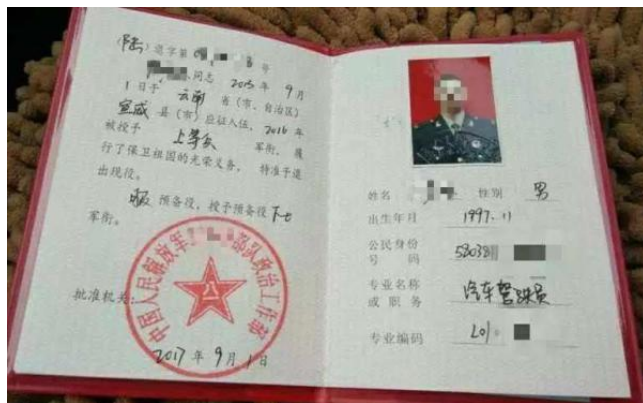 (陆)退字第 号
同志 2015 年 9 月
1 日于 云南 省(市、自治区)
宣威 县(市)应征入伍, 2016 年
被授予 上等兵 军衔, 履
行了保卫祖国的光荣义务, 特准予退
出现役。
服 预备役, 授予预备役 下士
军衔。
批准机关:
中国人民解放军 部队政治工作部
2017 年 9 月 1 日
姓名 性别 男
出生年月 1997.11
公民身份
号 码
专业名称 汽车驾驶员
或 职 务
专业编码